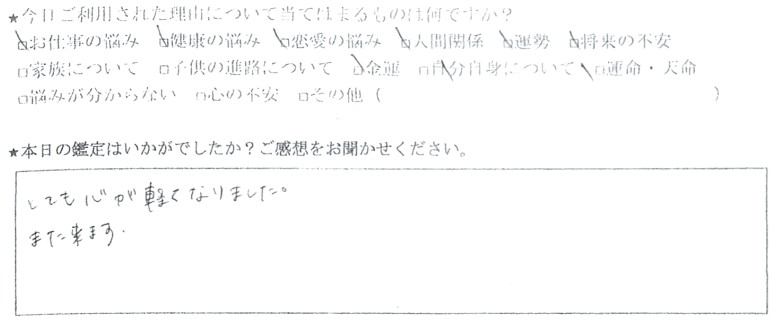 ★今日ご利用された理由について当てはまるものは何ですか？
☑お仕事の悩み ☑健康の悩み ☑恋愛の悩み ☑人間関係 ☑運勢 ☑将来の不安
□家族について □子供の進路について ☑金運 ☑自分自身について ☑運命・天命
□悩みが分からない □心の不安 □その他（ ）
★本日の鑑定はいかがでしたか？ご感想をお聞かせください。
とても心が軽くなりました。
また来ます.